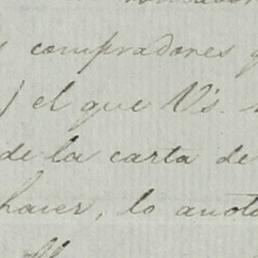 compradores
) el que V's.
de la carta de
haver, lo anoto